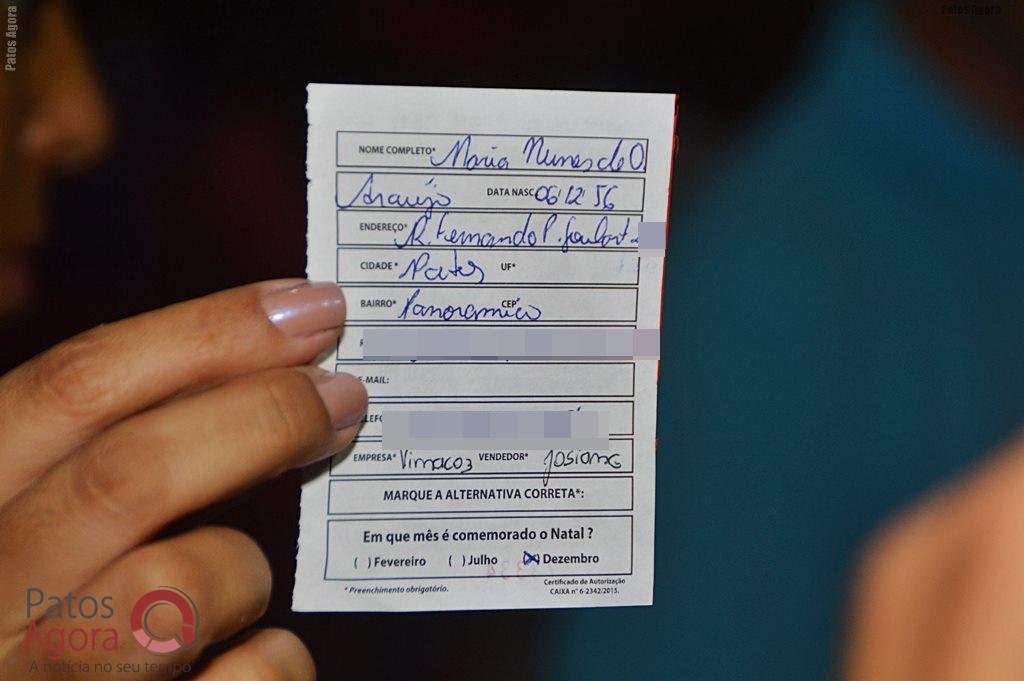 Patos Agora
Patos Agora
NOME COMPLETO* Maria Nunes de O.
Araújo DATA NASC 06/12/56
ENDEREÇO* R. Fernando P. Goulart
CIDADE* Patos UF*
BAIRRO* Panoramico CEP*
E-MAIL:
EMPRESA* Vimaco3 VENDEDOR* Josiane
MARQUE A ALTERNATIVA CORRETA*:
Em que mês é comemorado o Natal ?
( ) Fevereiro ( ) Julho (X) Dezembro
* Preenchimento obrigatório.
Certificado de Autorização
CAIXA n° 6-2342/2015.
Patos
Agora
A notícia no seu tempo